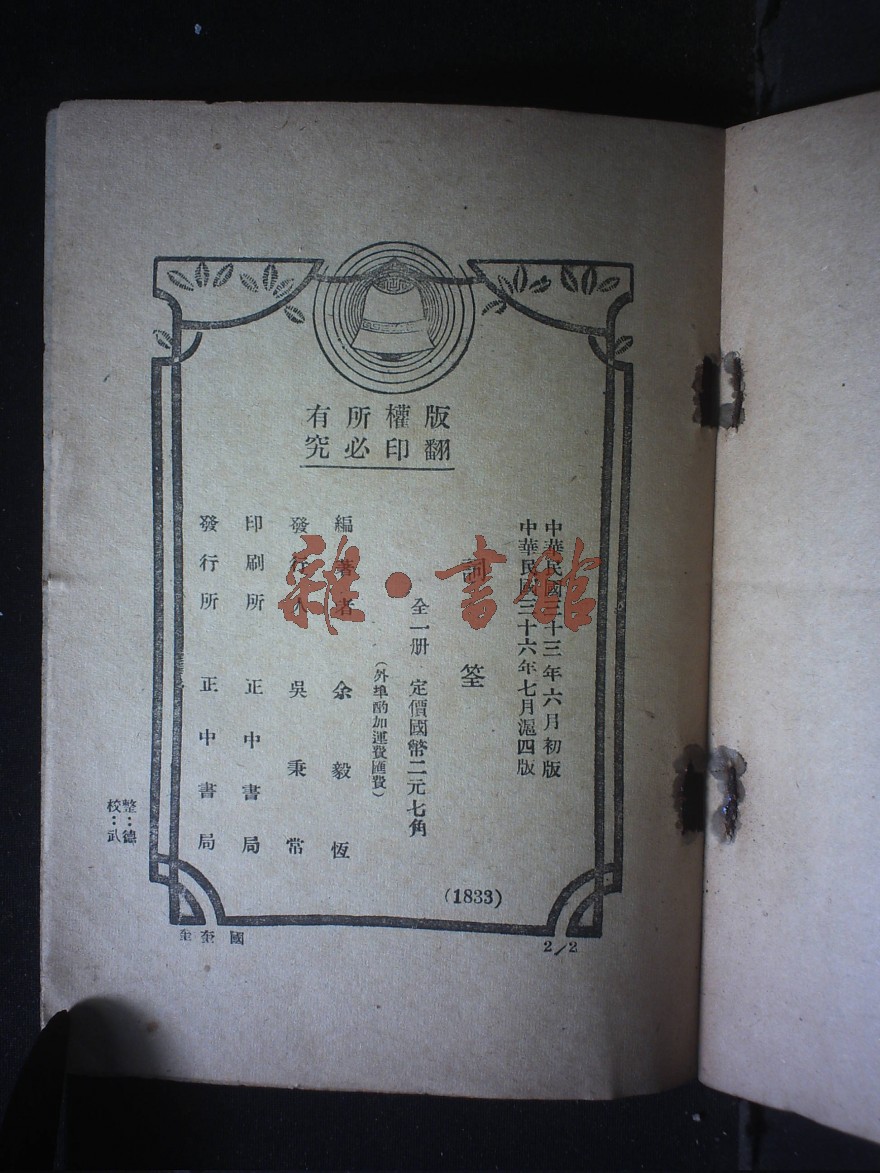 版權所有
翻印必究
中華民國三十三年六月初版
中華民國三十六年七月滬四版
詞筌
全一册 定價國幣二元七角
(外埠酌加運費匯費)
編著者 余毅恆
發行人 吳秉常
印刷所 正中書局
發行所 正中書局
(1833)
整:德
校:武
2/2
雜·書館